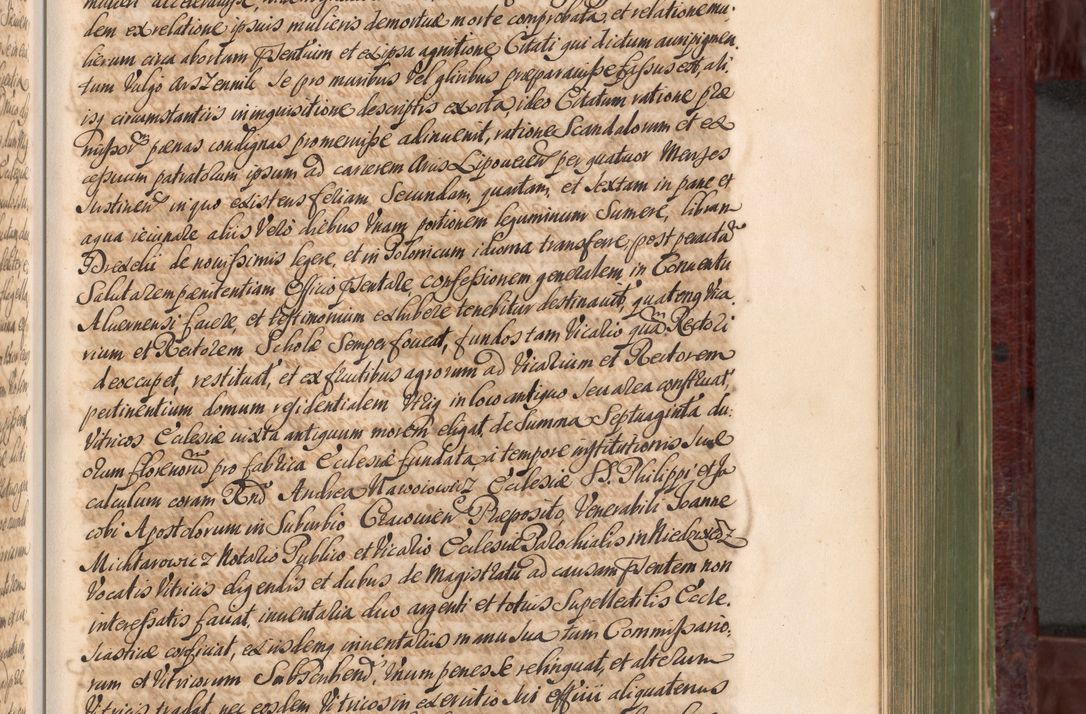 dem ex relatione ipsius mulieris demortuæ morte comprobata, et relatione mu-
lierum circa abortum Psentium et ex ipsa agnitione Citati qui dictum auripigmen-
tum Vulgo Arszennik se pro muribus Vel gliribus præparavisse fassus est, ali-
isq circumstantiis in inquisitione descriptis ex ideo Citatum ratione præ
missor pænas condignas promeruisse adinvenit, ratione Scandalorum et ex
cessuum patratorum ipsum ad carcerem Arcis Lipovecen per quatuor Menses
Sustinen in quo existens feriam Secundam, quartam, et Sextam in pane et
aqua ieiunare aliis Vero diebus Vnam portionem leguminum Sumere, librum
Drexelii de novissimis legere, et in Polonicum idioma transferre, post peractam
Salutarem pænitentiam Officio Psentare confessionem generalem in Conventu
Alvernensi facere, et testimonium exhibere tenebitur destinavit, quatenq Vica-
rium et Rectorem Scholæ Semper foveat, fundos tam Vicario quam Rectori
deoccupet, restituat, et ex fructibus agrorum ad Vicarium et Rectorem
pertinentium domum residentialem Vtriq in loco antiquo seu area construat,
Vitricos Ecclesiæ iuxta antiquum morem eligat, de Summa Septuaginta du-
orum florenorum pro fabrica Ecclesiæ fundata à tempore institutionis suæ
calculum coram Rnd Andrea Nawoiowicz Ecclesiæ SS. Philippi et Ja-
cobi Apostolorum in Suburbio Cracovien Præposito, Venerabili Joanne
Michtarowicz Notario Publico et Vicario Ecclesiæ Parochialis in
Vocatis Vitricis eligendis et duobus de Magistratu ad causam Psentem non
interessatis faciat, inventaria duo argenti et totius Supellectilis Eccle-
siasticæ conficiat, ex iisdemq inventariis manu sua tum Commissario-
rum et Vitricorum Subscribend, Vnum penes se relinquat, et alterum
Vitricis tradat, nec eosdem Vitricos in exercitio sui officii aliquatenus